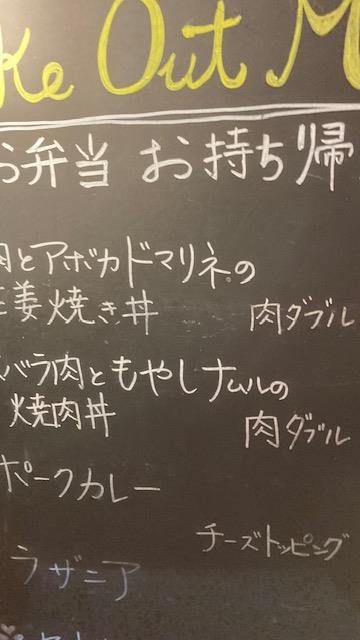 ke Out M
お弁当 お持ち帰
肉とアボカドマリネの
生姜焼き丼
肉ダブル
バラ肉ともやしナムルの
焼肉丼
肉ダブル
ポークカレー
チーズトッピング
ラザニア